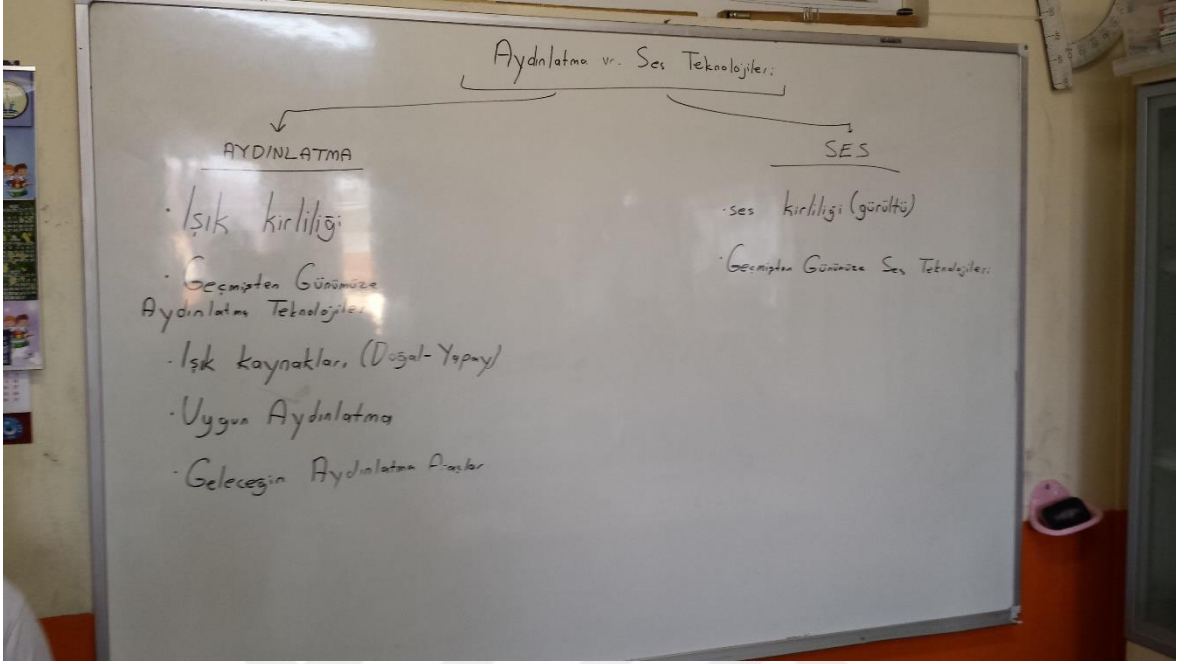 Aydınlatma ve Ses Teknolojileri
AYDINLATMA
• Işık kirliliği
• Geçmişten Günümüze
Aydınlatma Teknolojileri
• Işık kaynakları (Doğal-Yapay)
• Uygun Aydınlatma
• Geleceğin Aydınlatma Araçları
SES
• ses kirliliği (gürültü)
• Geçmişten Günümüze Ses Teknolojileri